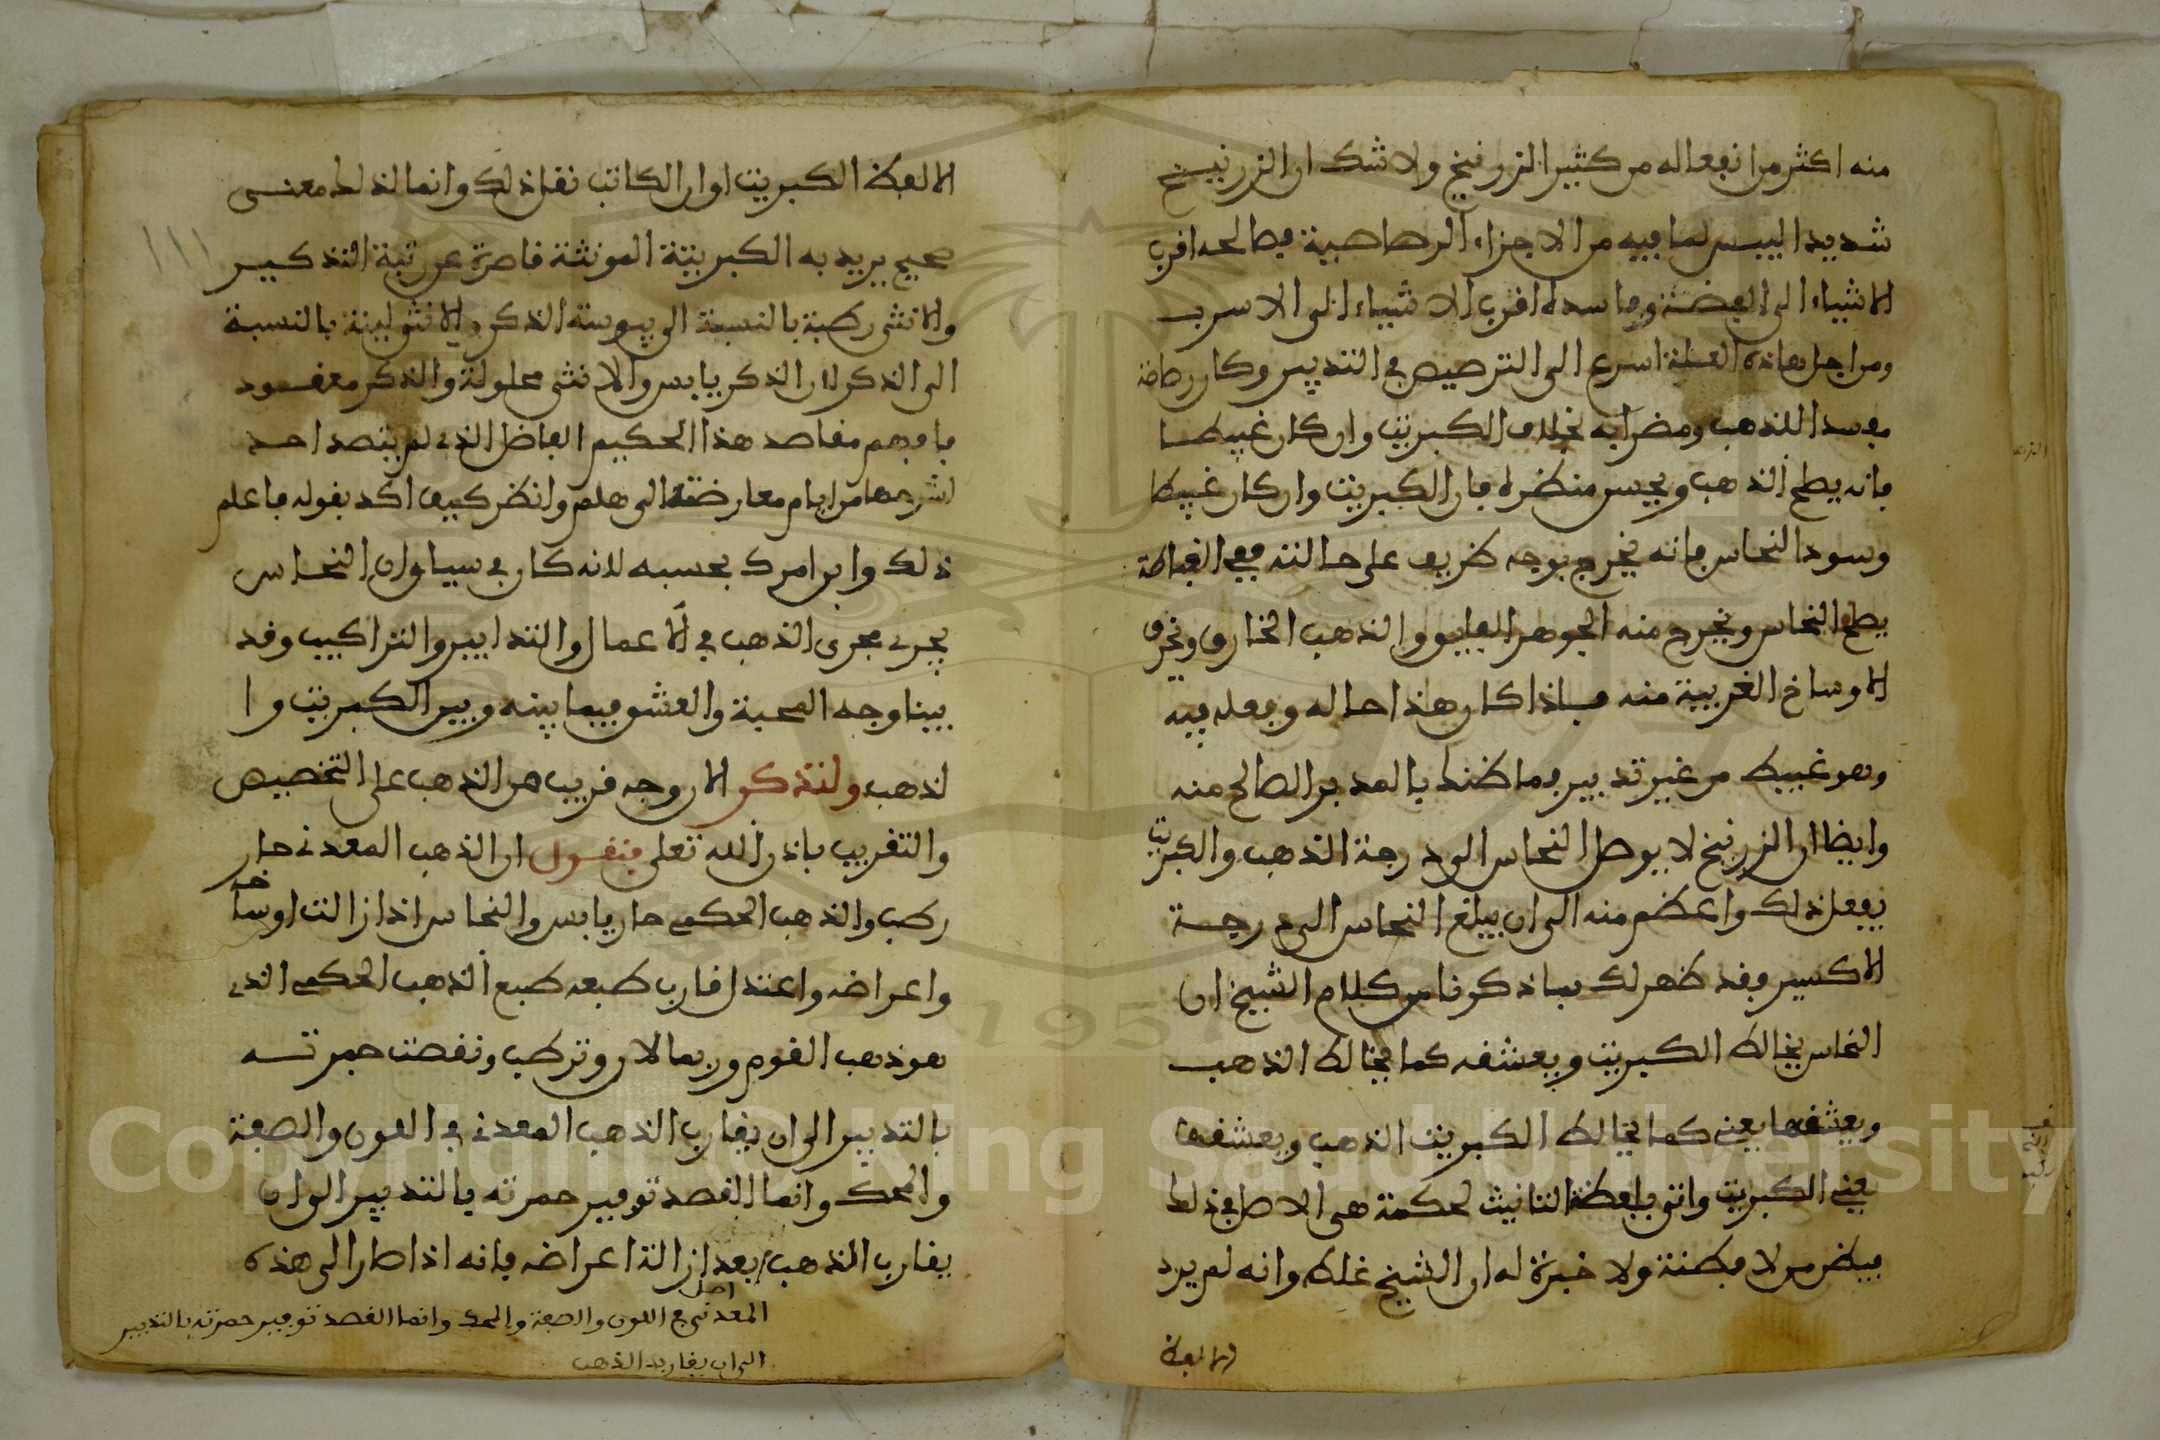 منه اكثر من انفعاله من كثير الزرنيخ ولا شك ان الزرنيخ
شديد اليبس لما فيه من الاجزاء الرصاصية فصالحه اقرب
الاشياء الى الفضة وفاسده اقرب الاشياء الى الاسرب
ومن اجل هاذه العلة اسرع الى الترصيص في التدبير وكان رصاصا
مفسدا للذهب ومضرا به بخلاف الكبريت وان كان غبيطا
فانه يصلح الذهب ويحسن منظره فان الكبريت وان كان غبيطا
وسود النحاس فانه يخرج بوجه ظريف على حالته فهي الغباطة
يصلح النحاس ويخرج منه الجوهر الفايق والذهب الخارق ويخرق
الاوساخ الغريبة منه فاذا كان هذا حاله وفعله فيه
وهو غبيط من غير تدبير فما ظنك بالمدبر الصالح منه
وايضا ان الزرنيخ لا يوصل النحاس الى درجة الذهب والكبريت
يفعل ذلك واعظم منه الى ان يبلغ النحاس الى درجة
الاكسير وقد ظهر لك مما ذكرنا من كلام الشيخ ان
النحاس يخالط الكبريت ويعشقه كما يخالط الذهب
ويعشقها يعني كما يخالط الكبريت الذهب ويعشقها
يعني الكبريت واتى بلفظة التانيث لحكمة هي الاصل في ذلك
فيظن من لا فطنة ولا خبرة له ان الشيخ غلط وانه لم يرد
الا لفظ
الا لفظ الكبريت او ان الكاتب نقل ذلك وانما لذلك معنى
صحيح يريد به الكبريتة المونثة قاصرة عن رتبة التذكير
والانثى رطبة بالنسبة الى يبوسة الذكر والانثى لينة بالنسبة
الى الذكر لان الذكر يابس والانثى محلولة والذكر معقود
فافهم مقاصد هذا الحكيم الفاضل الذي لم يتصد احد
لشرحها من ايام معارضته الى هلم وانظر كيف اكد بقوله فاعلم
ذلك وابن امرك بحسبه لانه كان في سياق ان النحاس
يجري مجرى الذهب في الاعمال والتدابير والتراكيب وقد
بينا وجه المحبة والعشق فيما بينه وبين الكبريت وا
لذهب ولنذكر الان وجه قريب من الذهب على التخصيص
والتقريب باذن الله تعلى فنقول ان الذهب المعدني حار
رطب والذهب الحكمي حار يابس والنحاس اذا زالت اوساخه
واعراضه واعتدل قارب طبعه طبع الذهب الحكمي الذي
هو ذهب القوم وربما لان وترطب ونقصت حمرته
بالتدبير الى ان يقارب الذهب المعدني في اللون والصفة
والمحك وانما القصد توفير حمرته بالتدبير الى ان
يقارب الذهب بعد ازالة اعراضه فانه اذا صار الى هذه
اصل
المعدني في اللون والصفة والمحك وانما القصد توفير حمرته بالتدبير
الى ان يقارب الذهب